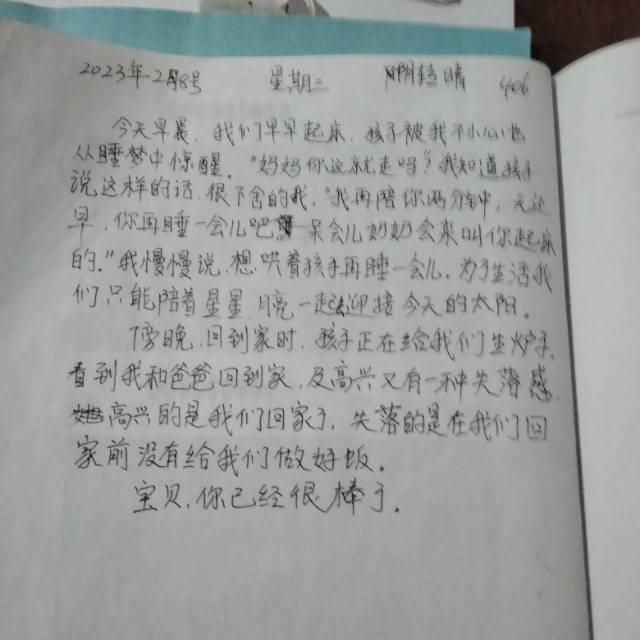 2023年2月8号 星期三 阴转晴 406
今天早晨,我们早早起床,孩子被我不小心也
从睡梦中惊醒。"妈妈你这就走吗?我知道孩子
说这样的话,很不舍的我,"我再陪你两分钟,天还
早,你再睡一会儿吧,呆会儿奶奶会来叫你起床
的。"我慢慢说,想哄着孩子再睡一会儿,为了生活我
们只能陪着星星、月亮一起迎接今天的太阳。
傍晚,回到家时,孩子正在给我们生炉子,
看到我和爸爸回到家,及高兴又有一种失落感,
高兴的是我们回家了,失落的是在我们回
家前没有给我们做好饭。
宝贝,你已经很棒了。